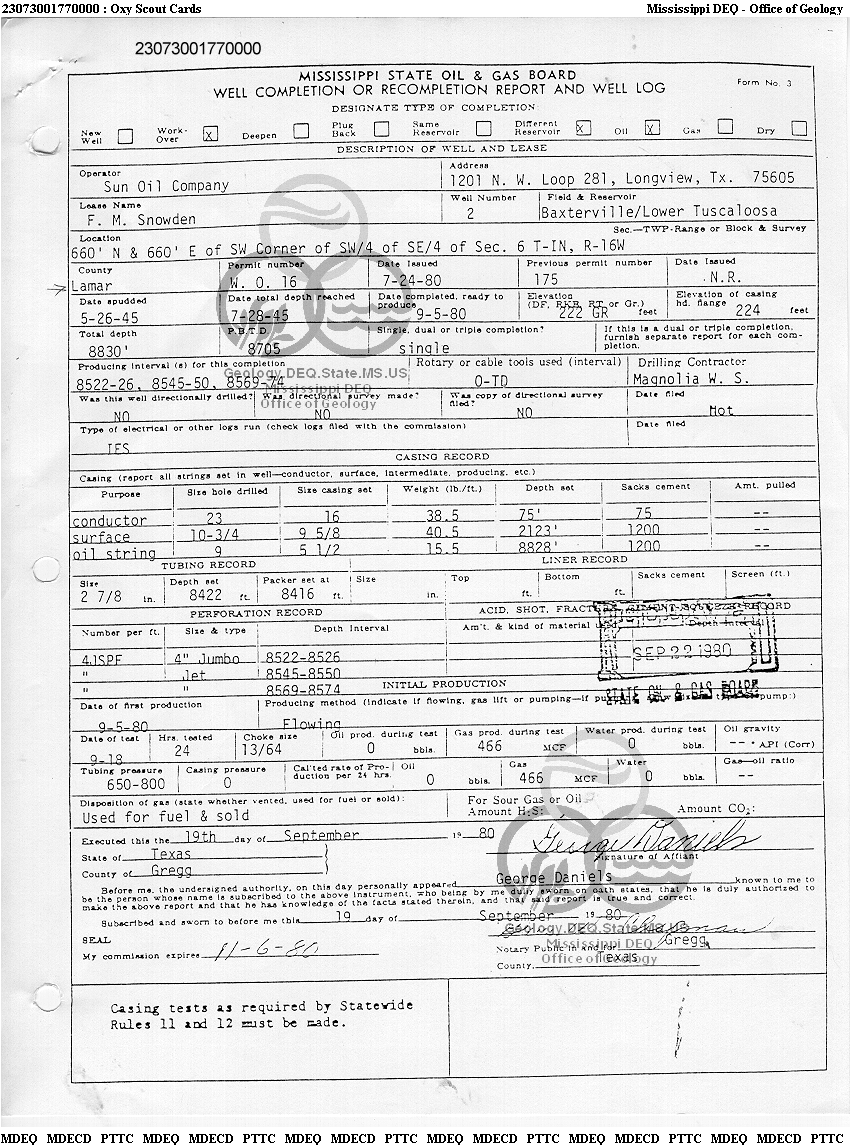 23073001770000 : Oxy Scout Cards Mississippi DEQ - Office of Geology
23073001770000
MISSISSIPPI STATE OIL & GAS BOARD
WELL COMPLETION OR RECOMPLETION REPORT AND WELL LOG Form No. 3
DESIGNATE TYPE OF COMPLETION:
New Well Work-Over X Deepen Plug Back Same Reservoir Different Reservoir X Oil X Gas Dry
DESCRIPTION OF WELL AND LEASE
Operator Address
Sun Oil Company 1201 N. W. Loop 281, Longview, Tx. 75605
Lease Name Well Number Field & Reservoir
F. M. Snowden 2 Baxterville/Lower Tuscaloosa
Location Sec.—TWP-Range or Block & Survey
660' N & 660' E of SW Corner of SW/4 of SE/4 of Sec. 6 T-IN, R-16W
County Permit number Date Issued Previous permit number Date Issued
Lamar W. O. 16 7-24-80 175 N.R.
Date spudded Date total depth reached Date completed, ready to produce Elevation (DF, RKB, RT or Gr.) Elevation of casing hd. flange
5-26-45 7-28-45 9-5-80 222 GR feet 224 feet
Total depth P.B.T.D Single, dual or triple completion? If this is a dual or triple completion, furnish separate report for each completion.
8830' 8705 single
Producing interval (s) for this completion Rotary or cable tools used (interval) Drilling Contractor
8522-26, 8545-50, 8569-74 O-TD Magnolia W. S.
Geology.DEQ.State.MS.US
Mississippi DEQ
Office of Geology
Was this well directionally drilled? Was directional survey made? Was copy of directional survey filed? Date filed
NO NO NO Not
Type of electrical or other logs run (check logs filed with the commission) Date filed
IES
CASING RECORD
Casing (report all strings set in well—conductor, surface, intermediate, producing, etc.)
Purpose Size hole drilled Size casing set Weight (lb./ft.) Depth set Sacks cement Amt. pulled
conductor 23 16 38.5 75' 75 --
surface 10-3/4 9 5/8 40.5 2123' 1200 --
oil string 9 5 1/2 15.5 8828' 1200 --
TUBING RECORD LINER RECORD
Size Depth set Packer set at Size Top Bottom Sacks cement Screen (ft.)
2 7/8 in. 8422 ft. 8416 ft. in. ft. ft.
PERFORATION RECORD ACID, SHOT, FRACTURE, CEMENT SQUEEZE RECORD
Number per ft. Size & type Depth Interval Am't. & kind of material used Depth Interval
4JSPF 4" Jumbo 8522-8526
" Jet 8545-8550
" " 8569-8574
SEP 22 1980
STATE OIL & GAS BOARD
INITIAL PRODUCTION
Date of first production Producing method (indicate if flowing, gas lift or pumping—if pump:)
9-5-80 Flowing
Date of test Hrs. tested Choke size Oil prod. during test Gas prod. during test Water prod. during test Oil gravity
9-18 24 13/64 0 bbls. 466 MCF 0 bbls. -- ° API (Corr)
Tubing pressure Casing pressure Cal'ted rate of Production per 24 hrs. Oil Gas Water Gas—oil ratio
650-800 0 0 bbls. 466 MCF 0 bbls. --
Disposition of gas (state whether vented, used for fuel or sold): For Sour Gas or Oil
Used for fuel & sold Amount H2S: Amount CO2:
Executed this the 19th day of September 19 80
George Daniels
State of Texas Signature of Affiant
County of Gregg
Before me, the undersigned authority, on this day personally appeared George Daniels known to me to
be the person whose name is subscribed to the above instrument, who being by me duly sworn on oath states, that he is duly authorized to
make the above report and that he has knowledge of the facts stated therein, and that said report is true and correct.
Subscribed and sworn to before me this 19 day of September 19 80
Geology.DEQ.State.MS.US
SEAL Notary Public in and for Gregg
Mississippi DEQ
My commission expires 11-6-80
Office of Geology
County, Texas
Casing tests as required by Statewide
Rules 11 and 12 must be made.
MDEQ MDECD PTTC MDEQ MDECD PTTC MDEQ MDECD PTTC MDEQ MDECD PTTC MDEQ MDECD PTTC MDEQ MDECD PTTC